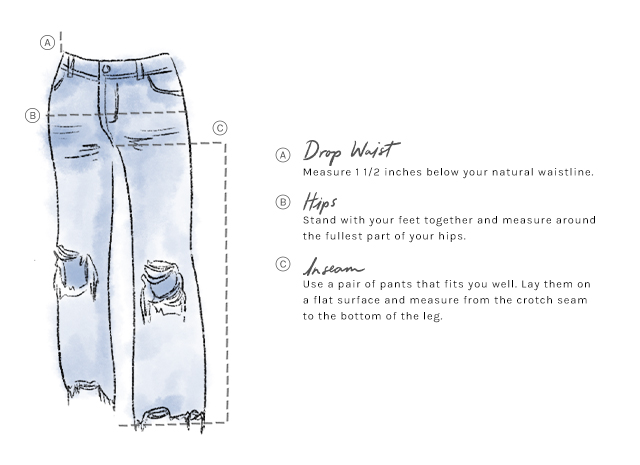 A
B
C
A Drop Waist
Measure 1 1/2 inches below your natural waistline.
B Hips
Stand with your feet together and measure around
the fullest part of your hips.
C Inseam
Use a pair of pants that fits you well. Lay them on
a flat surface and measure from the crotch seam
to the bottom of the leg.